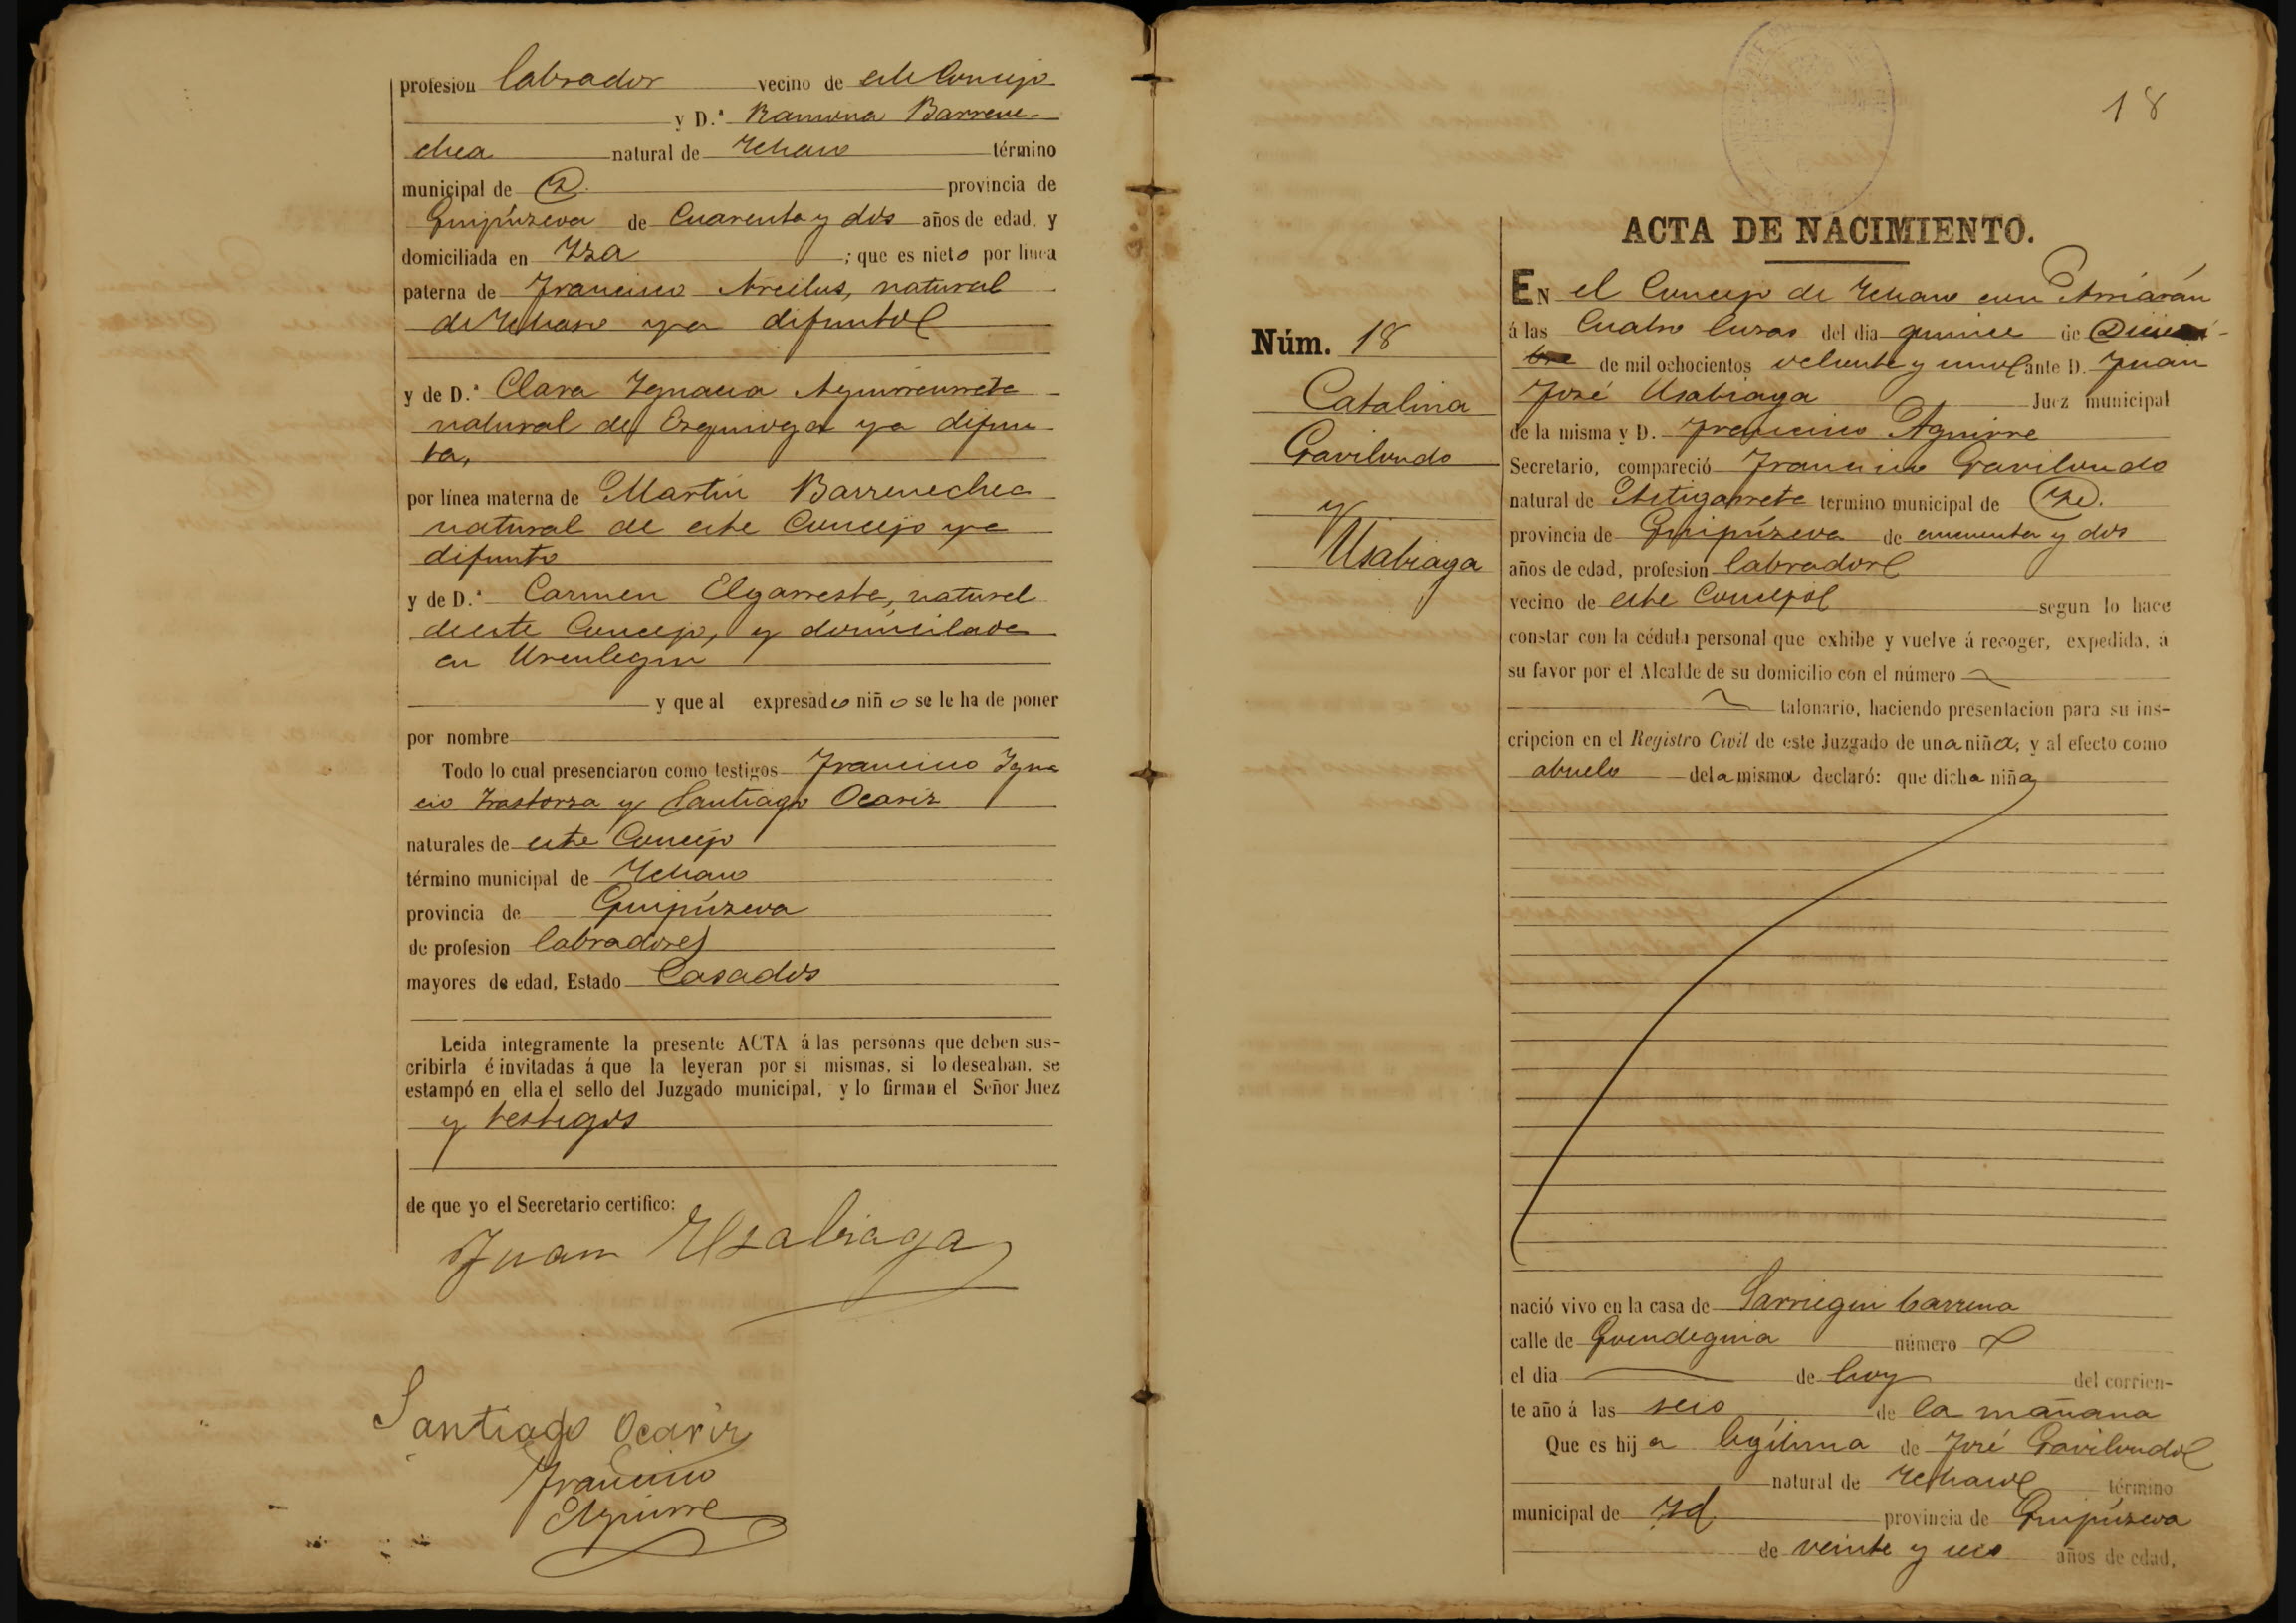 profesion labrador vecino de este Concejo
y D.ª Ramona Barrene-
chea natural de Ichaso término
municipal de id. provincia de
Guipúzcoa de Cuarenta y dos años de edad, y
domiciliada en Iza ; que es nieto por línea
paterna de Francisco Arcelus, natural
de Ichaso ya difunto
y de D.ª Clara Ignacia Aguirreurreta
natural de Ezquioga ya difun
ta,
por línea materna de Martin Barrenechea
natural de este Concejo ya
difunto
y de D.ª Carmen Elgarresta, natural
de este Concejo, y domicilada
en
y que al expresado niño se le ha de poner
por nombre
Todo lo cual presenciaron como testigos Francisco Igna
cio Irastorza y Santiago Ocariz
naturales de este Concejo
término municipal de Ichaso
provincia de Guipúzcoa
de profesion labradores
mayores de edad, Estado Casados
Leida integramente la presente ACTA á las personas que deben sus-
cribirla é invitadas á que la leyeran por si mismas, si lo deseaban, se
estampó en ella el sello del Juzgado municipal, y lo firman el Señor Juez
y testigos
de que yo el Secretario certifico:
Juan Usabiaga
Santiago Ocariz
Francisco
Aguirre
18
ACTA DE NACIMIENTO.
Núm. 18
Catalina
Gavilondo
y
Usabiaga
EN el Concejo de Ichaso con Arriarán
á las Cuatro horas del dia quince de Diciem-
bre de mil ochocientos ochenta y uno ante D. Juan
José Usabiaga Juez municipal
de la misma y D. Francisco Aguirre
Secretario, compareció Francisco Gavilondo
natural de Astigarreta termino municipal de id.
provincia de Guipúzcoa de cincuenta y dos
años de edad, profesion labrador
vecino de este Concejo segun lo hace
constar con la cédula personal que exhibe y vuelve á recoger, expedida, á
su favor por el Alcalde de su domicilio con el número
talonario, haciendo presentacion para su ins-
cripcion en el Registro Civil de este Juzgado de una niña, y al efecto como
abuelo de la misma declaró: que dicha niña
nació vivo en la casa de Sarriegui barrena
calle de número
el dia de hoy del corrien-
te año á las seis de la mañana
Que es hija legítima de José Gavilondo
natural de Ichaso término
municipal de id. provincia de Guipúzcoa
de veinte y seis años de edad,